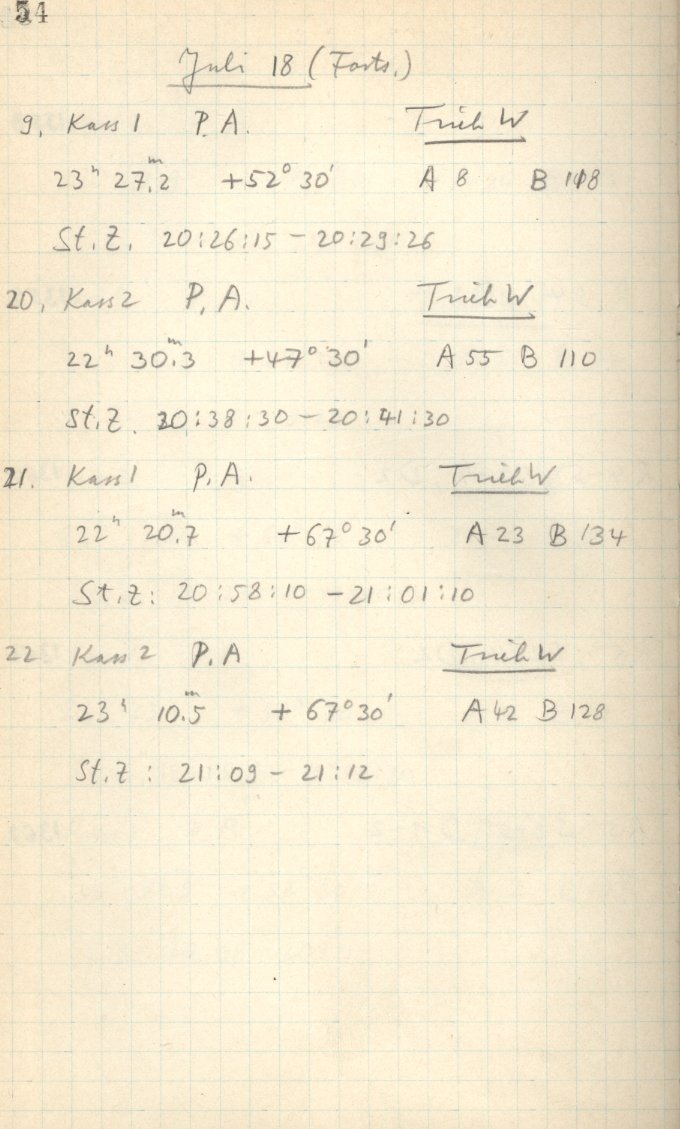 54
Juli 18 (Forts.)
9, Kass 1 P.A. Trieb W
23ʰ 27.ᵐ2 +52° 30' A 8 B 118
St.Z. 20:26:15 – 20:29:26
20, Kass 2 P.A. Trieb W
22ʰ 30.ᵐ3 +47° 30' A 55 B 110
St.Z. 20:38:30 – 20:41:30
21. Kass 1 P.A. Trieb W
22ʰ 20.ᵐ7 +67° 30' A 23 B 134
St.Z: 20:58:10 – 21:01:10
22 Kass 2 P.A Trieb W
23ʰ 10.ᵐ5 +67° 30' A 42 B 128
St.Z: 21:09 – 21:12